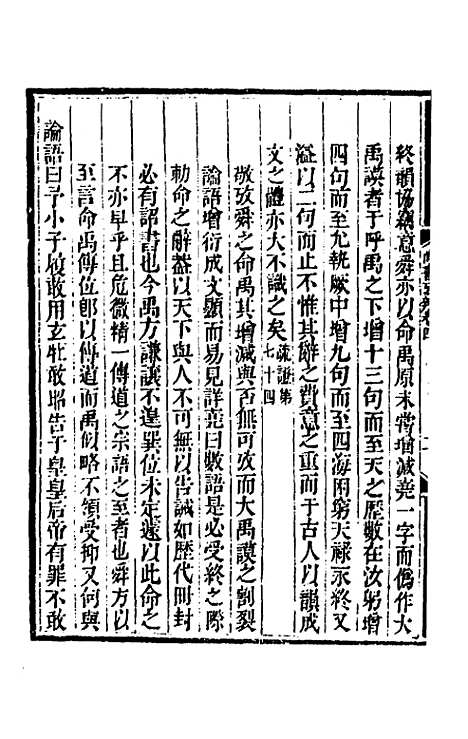 終韻協竊意舜亦以命禹原未嘗增減堯一字而僞作大
禹謨者于呼禹之下增十三句而至天之歷數在汝躬增
四句而至允執厥中增九句而至四海困窮天祿永終又
溢以二句而止不惟其辭之費意之重而于古人以韻成
文之體亦大不識之矣疏證第七十四
敬攷舜之命禹其增減與否無可攷而大禹謨之割裂
論語增衍成文顯而易見詳堯曰數語是必受終之際
勅命之辭蓋以天下與人不可無以告誡如歷代冊封
必有詔書也今禹方謙讓不遑罪位未定遂以此命之
不亦早乎且危微精一傳道之宗語之至者也舜方以
至言命禹傳位卽以傳道而禹似略不領受抑又何與
論語曰予小子履敢用玄牡敢昭告于皇皇后帝有罪不敢